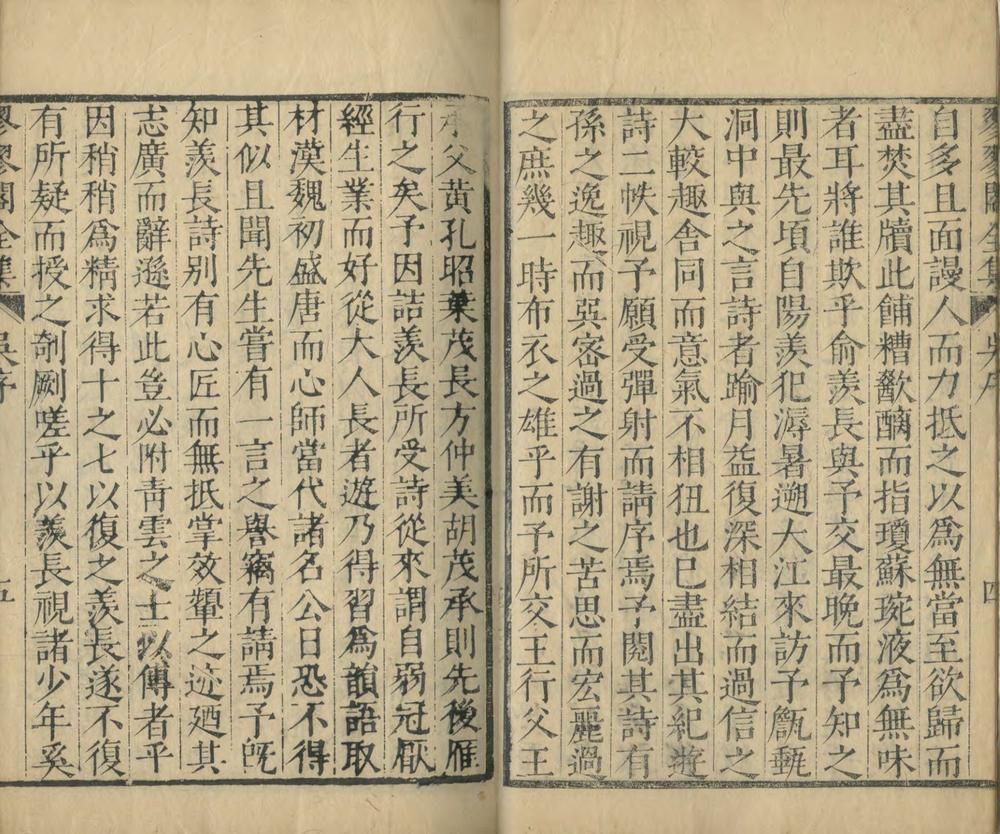 蓼蓼閣全集 吳序 四
自多且面謾人而力抵之以爲無當至欲歸而
盡焚其牘此餔糟歠醨而指瓊蘇琬液爲無味
者耳將誰欺乎俞羨長與予交最晚而予知之
則最先頃自陽羨犯溽暑遡大江來訪予甔甀
洞中與之言詩者踰月益復深相結而過信之
大較趣舍同而意氣不相狃也巳盡出其紀遊
詩二帙視予願受彈射而請序焉予閱其詩有
孫之逸趣而巽宻過之有謝之苦思而宏麗過
之庶幾一時布衣之雄乎而予所交王行父王
承父黃孔昭葉茂長方仲美胡茂承則先後雁
行之矣予因詰羨長所受詩從來謂自弱冠厭
經生業而好從大人長者遊乃得習爲韻語取
材漢魏初盛唐而心師當代諸名公日恐不得
其似且聞先生嘗有一言之譽竊有請焉予旣
知羨長詩别有心匠而無抵掌效顰之迹廼其
志廣而辭遜若此豈必附靑雲之士以傳者乎
因稍稍爲精求得十之七以復之羨長遂不復
有所疑而授之剞劂嗟乎以羨長視諸少年奚
蓼蓼閣全集 吳序 五